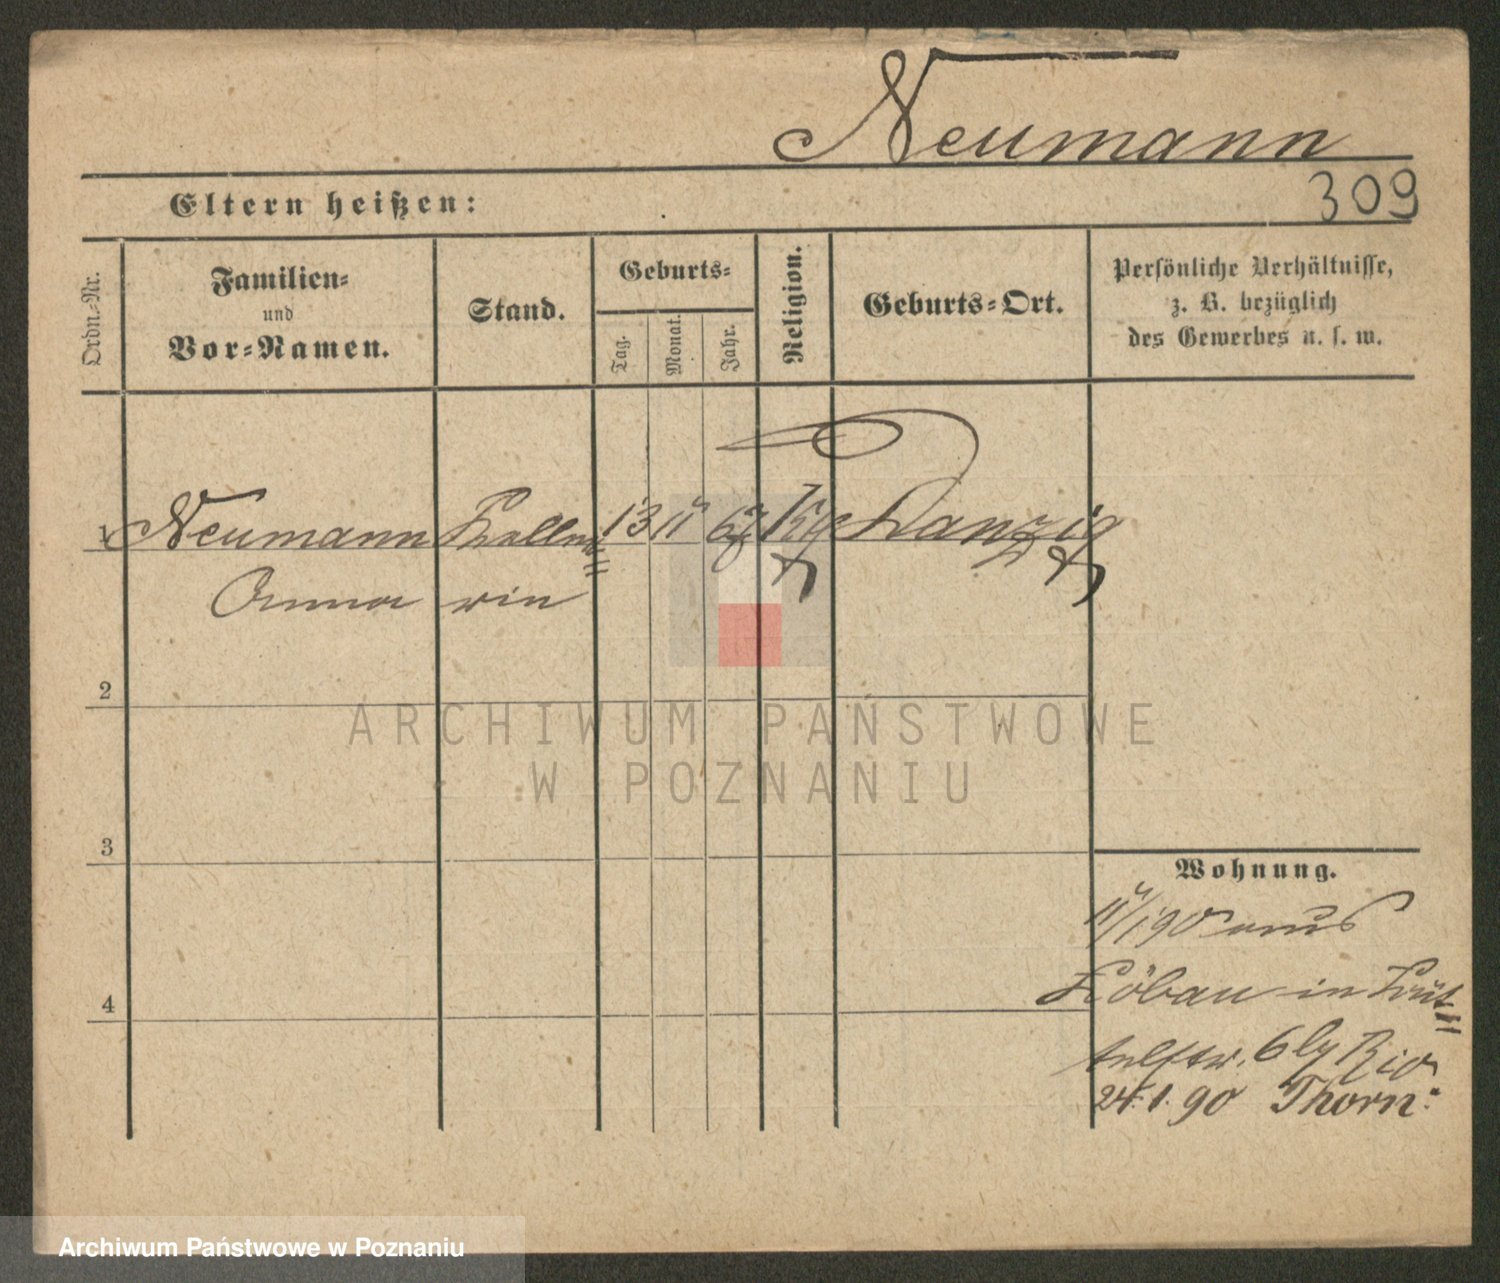 Neumann
309
Eltern heißen:
Ordn.-Nr.
Familien-
und
Vor-Namen.
Stand.
Geburts-
Tag.
Monat.
Jahr.
Religion.
Geburts-Ort.
Persönliche Verhältnisse,
z. B. bezüglich
des Gewerbes u. s. w.
1 Neumann Kellne= 13 11 67 Danzig
Anna rin
2
ARCHIWUM PAŃSTWOWE
W POZNANIU
3
Wohnung.
11/1 90 aus
Löbau in
4
24.1.90 Thorn.
Archiwum Państwowe w Poznaniu